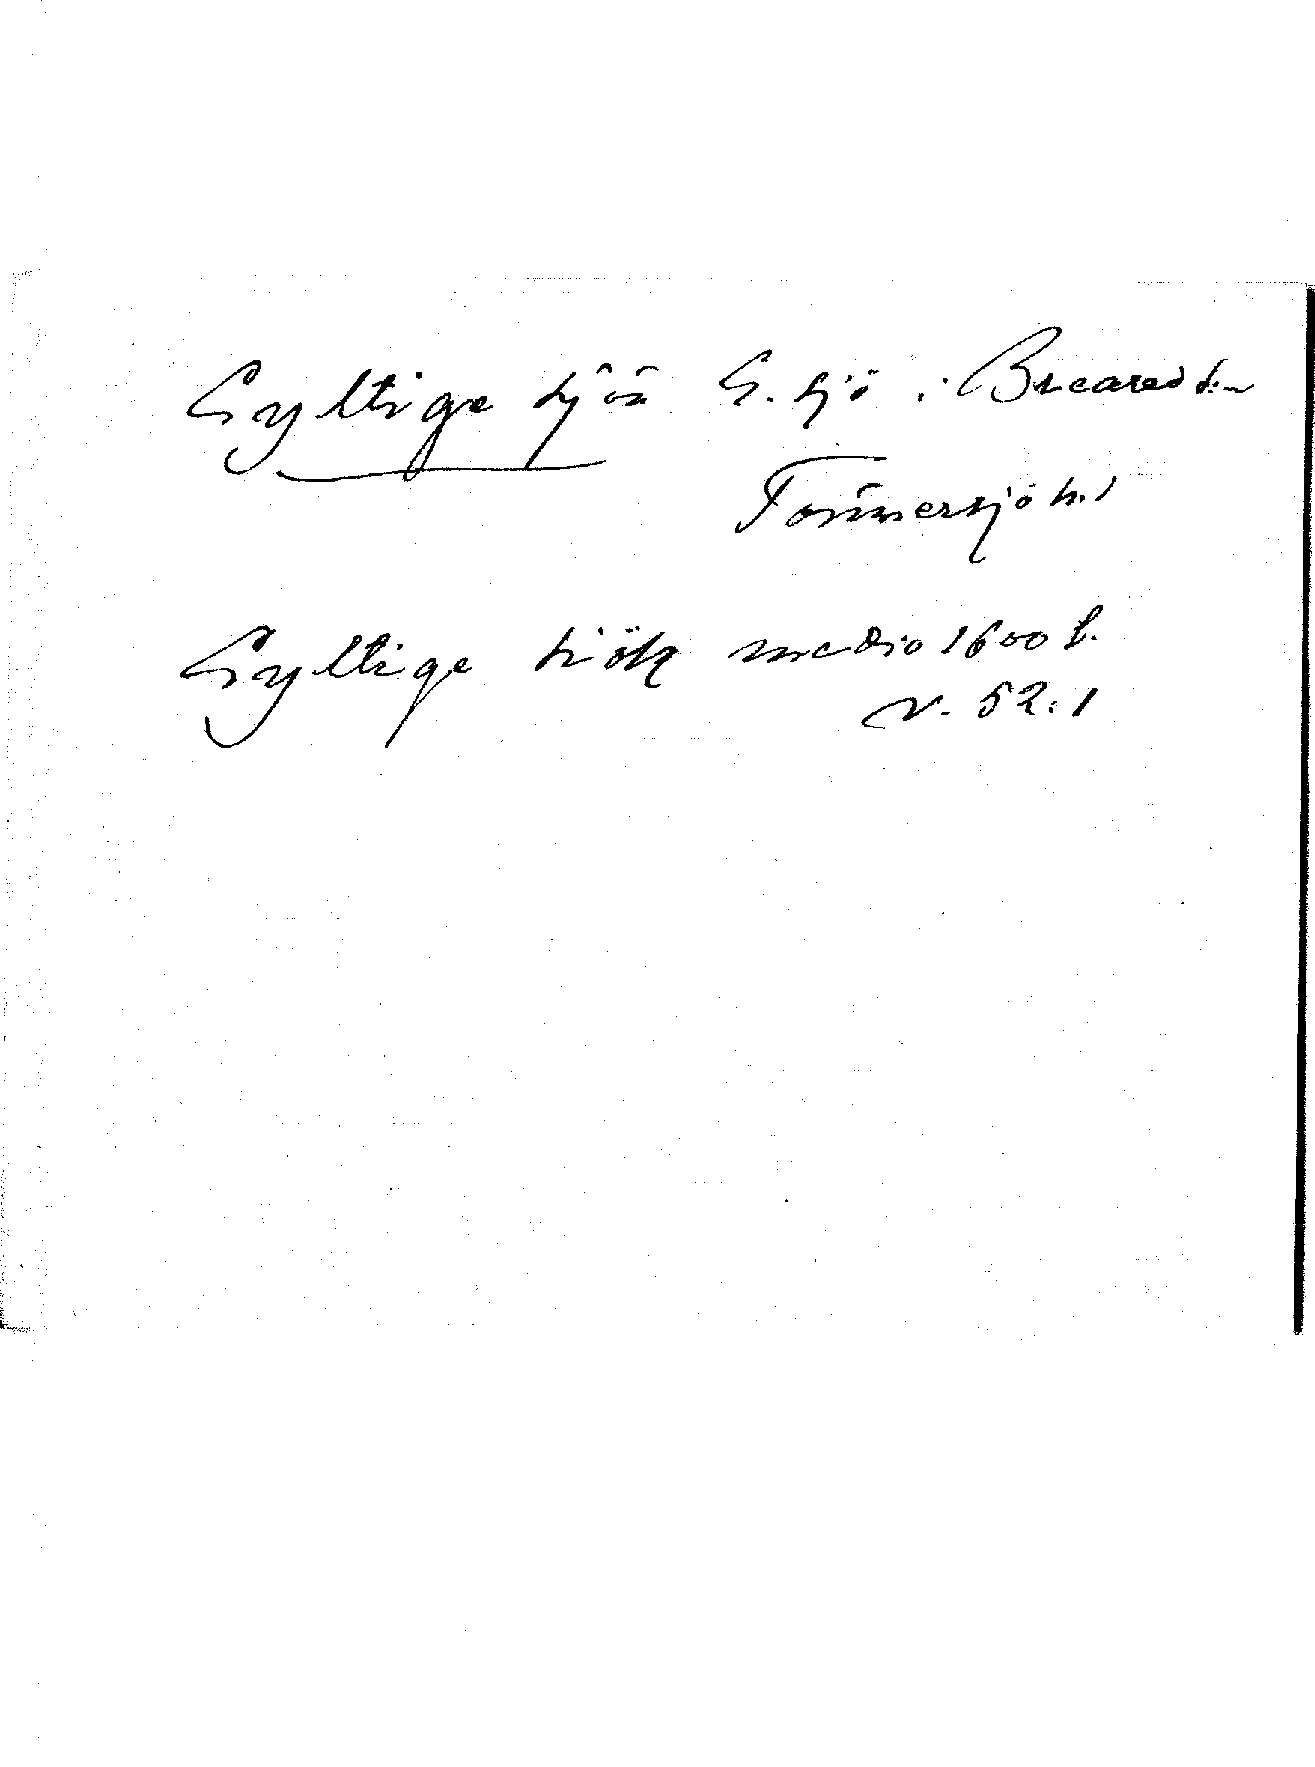 Gyltige sjön S. sjö i Breared sn
Tönnersjö hd
Gyltige siö medio 1600 t.
v. 52:1